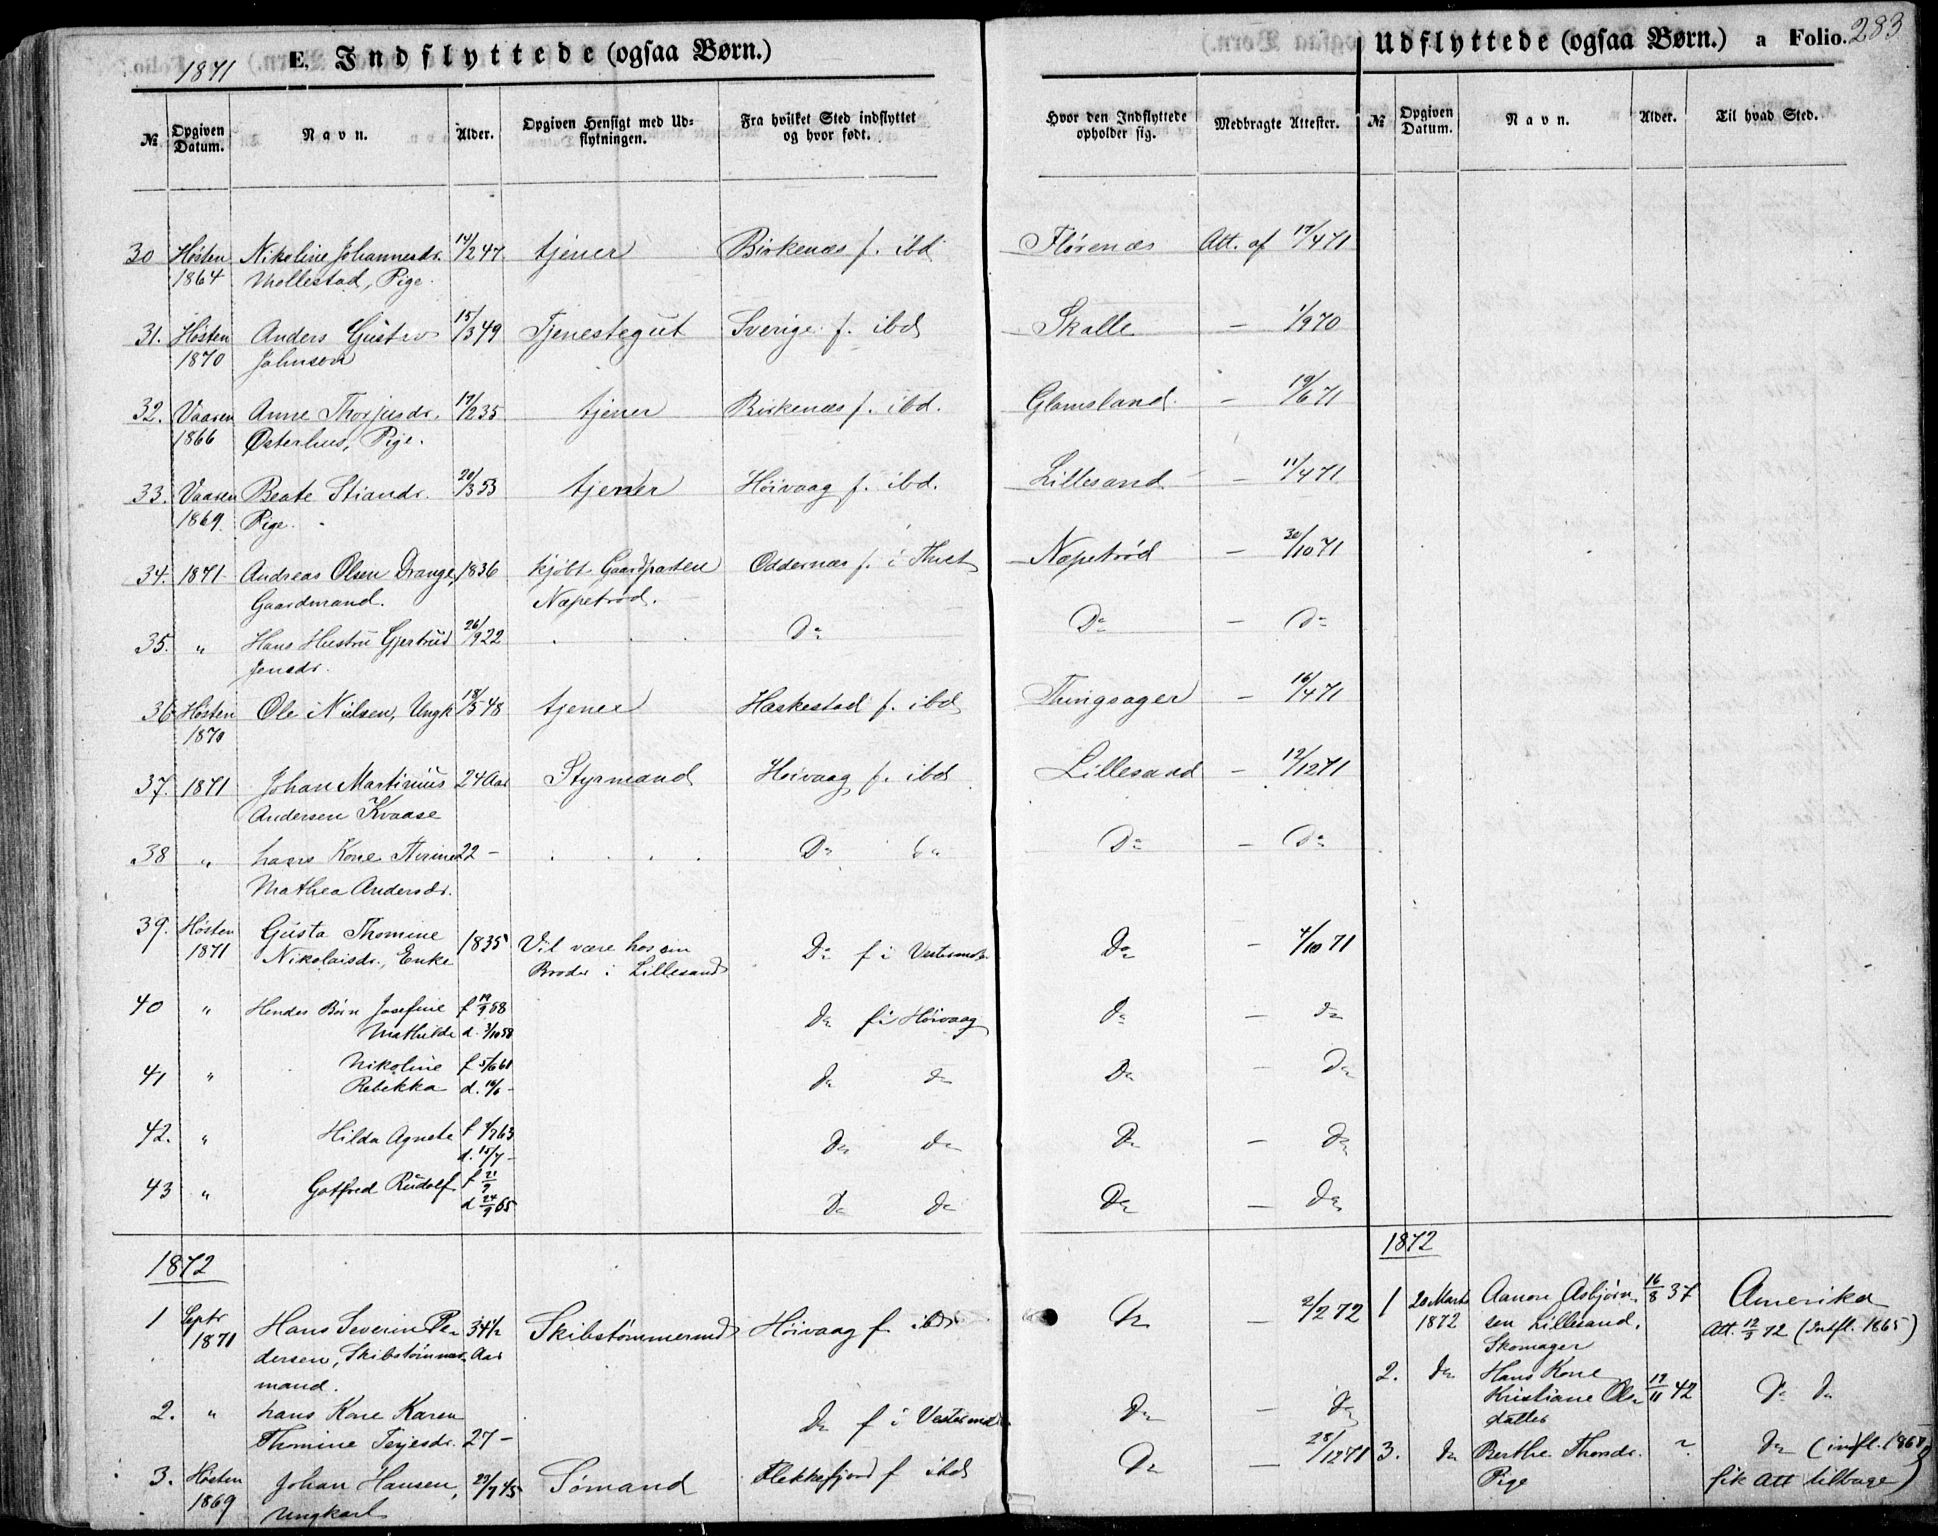 1871
E. Indflyttede (ogsaa Børn.)
Udflyttede (ogsaa Børn.) a Folio. 283
№ Opgiven Datum. Navn. Alder. Opgiven Hensigt med Udflytningen. Fra hvilket Sted indflyttet og hvor født. Hvor den Indflyttede opholder sig. Medbragte Attester. № Opgiven Datum. Navn. Alder. Til hvad Sted.
30 Høsten Nikoline Johannesdr. 14/2 47. tjener Birkenæs f. ibd Flørenæs Att. af 17/4 71
1864 Mollestad, Pige.
31. Høsten Anders Gustav 15/3 49 Tjenestegut Sverige f. ibd Skalle – 1/9 70
1870 Johnsen
32. Vaaren Anne Thorjusdr. 17/2 35 tjener Birkenæs f. ibd. Glamsland – 19/6 71
1866 Østerhus, Pige.
33. Vaaren Beate Stiandr. 20/3 53 tjener Høivaag f. ibd. Lillesand – 11/4 71
1869. Pige.
34. 1871 Andreas Olsen Drange, 1836 kjøbt Gaardparten Oddernæs f. i Næpetrød – 30/10 71
Gaardmand. Næpetrød.
35. " Hans Hustru Gjertrud 26/9 22 Do Do – Do
Jensdr.
36 Høsten Ole Nielsen, Ungk 18/5 48 tjener Haskestad f. ibd Thingsager – 16/4 71
1870
37. 1871 Johan Martinius 24 Aar Styrmand Høivaag f. ibd Lillesand – 12/12 71
Andersen Kvaase
38 " hans Kone Terine 22 – Do do Do – Do
Mathea Andersdr.
39. Høsten Gusta Thomine 1835 Vil være hos sin Do f i Vesteraad Do – 4/10 71
1871 Nikolaisdr., Enke Broder i Lillesand
40 " Hendes Børn Josefine f 19/9 58 Do f i Høivaag do – do
Mathilde d. 3/10 58
41 " Nikoline f 5/6 61 do do Do – Do
Rebekka d. 16/6 –
42. " Hilda Agnete f 7/7 63 Do do Do – Do
d. 15/7 –
43 " Gotfred Rudolf f 21/9 Do do Do – Do
d 24/9 65
1872
1872
1 Septr Hans Severin Pe- 34½ Skibstømmermd Høivaag f ibd Do – 2/2 72
1871 dersen, Skibstømmer- Aar
mand.
2. " hans Kone Karen Do f i Do – Do
Thomine Terjesdr. 27 –
3. Høsten Johan Hansen, 29/7 45 Sømand Flekkefjord f ibd Do – 28/12 71
1869 Ungkarl
1 20 Marts Aanon Asbjørn- 16/8 37 Amerika
1872 sen Lillesand, Att. 12/3 72 (Indfl. 1865)
Skomager
2. do Hans Kone
Kristiane Ols- 19/11 42 Do do
datter
3. do Berthe Thorsdr. ~ do (indfl. 1868
Pige fik Att tilbage)